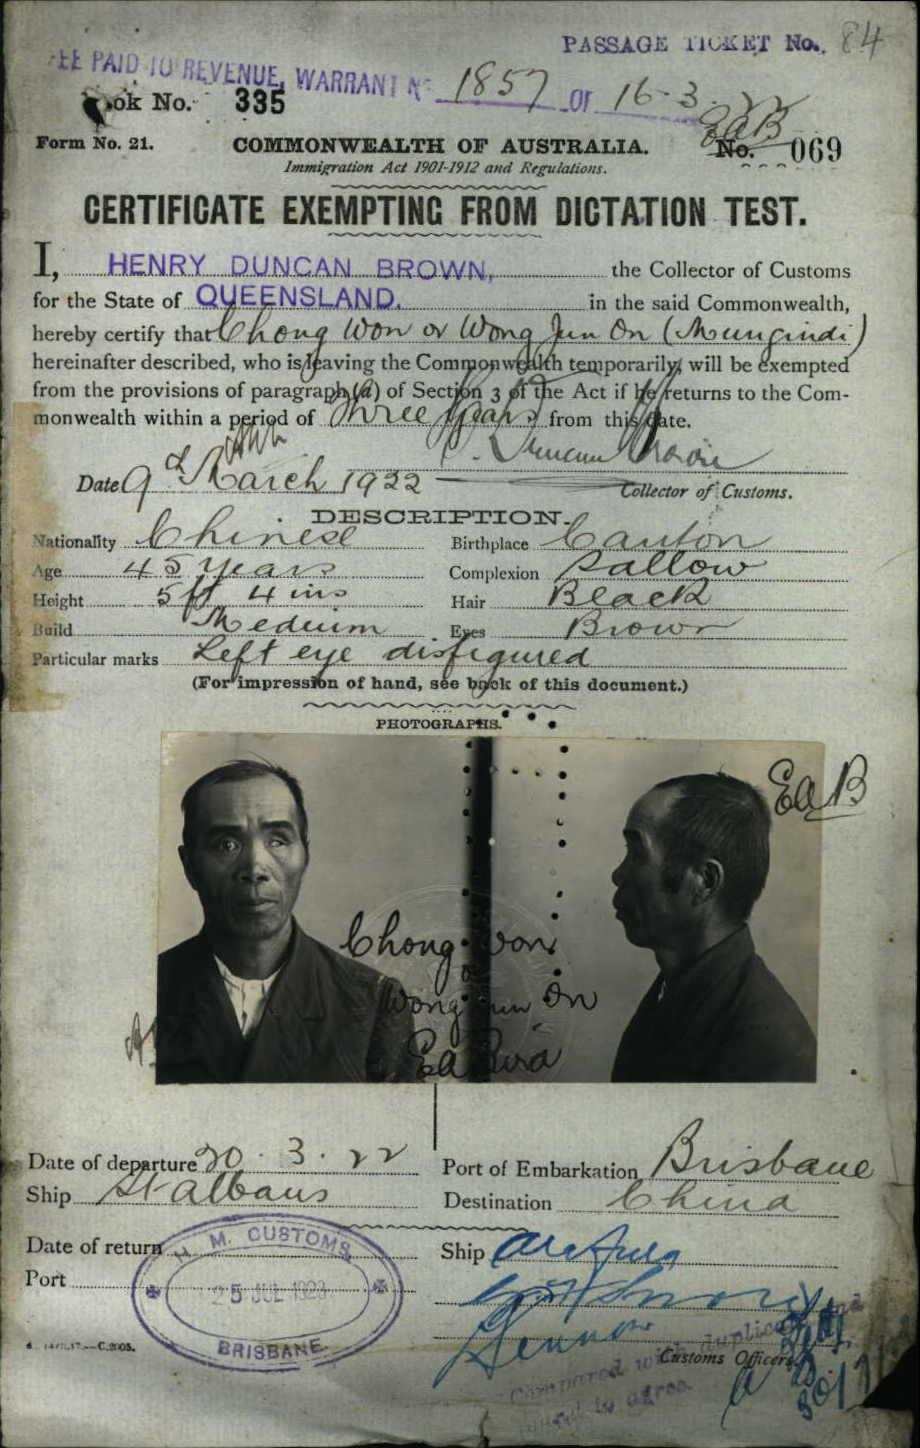 PASSAGE TICKET No. 84
FEE PAID TO REVENUE, WARRANT No 1857 OF 16.3.22
ok No. 335
EaB
Form No. 21. COMMONWEALTH OF AUSTRALIA. No. 069
Immigration Act 1901-1912 and Regulations.
CERTIFICATE EXEMPTING FROM DICTATION TEST.
I, HENRY DUNCAN BROWN, the Collector of Customs
for the State of QUEENSLAND. in the said Commonwealth,
hereby certify that Chong Won or Wong Jun On (Mungindi)
hereinafter described, who is leaving the Commonwealth temporarily, will be exempted
from the provisions of paragraph (a) of Section 3 of the Act if he returns to the Com-
monwealth within a period of Three Years from this date.
Date 9th March 1922
Collector of Customs.
DESCRIPTION.
Nationality Chinese Birthplace Canton
Age 45 years Complexion Sallow
Height 5ft 4 ins Hair Black
Build Medium Eyes Brown
Particular marks Left eye disfigured
(For impression of hand, see back of this document.)
PHOTOGRAPHS.
EaB
Chong Won
or
Wong Jun On
Date of departure 20.3.22 Port of Embarkation Brisbane
Ship St Albans Destination China
Date of return Ship Arafura
Port
H. M. CUSTOMS
25 JUL 1923
BRISBANE
C.2005.
Customs Officers
Compared with duplicate and
found to agree.